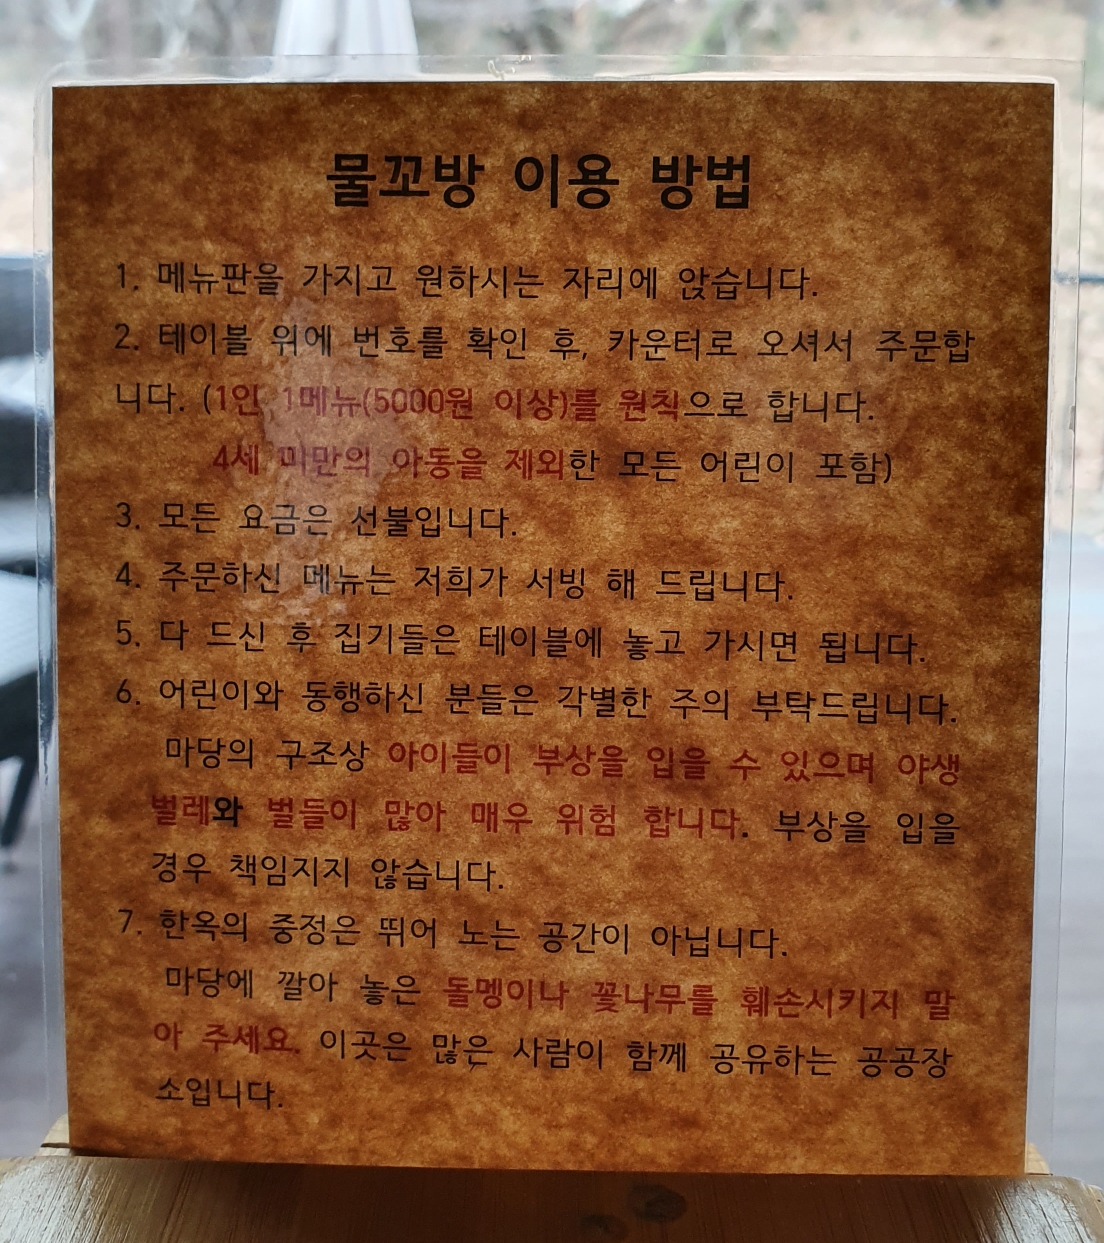 물꼬방 이용 방법
1. 메뉴판을 가지고 원하시는 자리에 앉습니다.
2. 테이블 위에 번호를 확인 후, 카운터로 오셔서 주문합
니다. (1인 1메뉴(5000원 이상)를 원칙으로 합니다.
4세 미만의 아동을 제외한 모든 어린이 포함)
3. 모든 요금은 선불입니다.
4. 주문하신 메뉴는 저희가 서빙 해 드립니다.
5. 다 드신 후 집기들은 테이블에 놓고 가시면 됩니다.
6. 어린이와 동행하신 분들은 각별한 주의 부탁드립니다.
마당의 구조상 아이들이 부상을 입을 수 있으며 야생
벌레와 벌들이 많아 매우 위험 합니다. 부상을 입을
경우 책임지지 않습니다.
7. 한옥의 중정은 뛰어 노는 공간이 아닙니다.
마당에 깔아 놓은 돌멩이나 꽃나무를 훼손시키지 말
아 주세요. 이곳은 많은 사람이 함께 공유하는 공공장
소입니다.